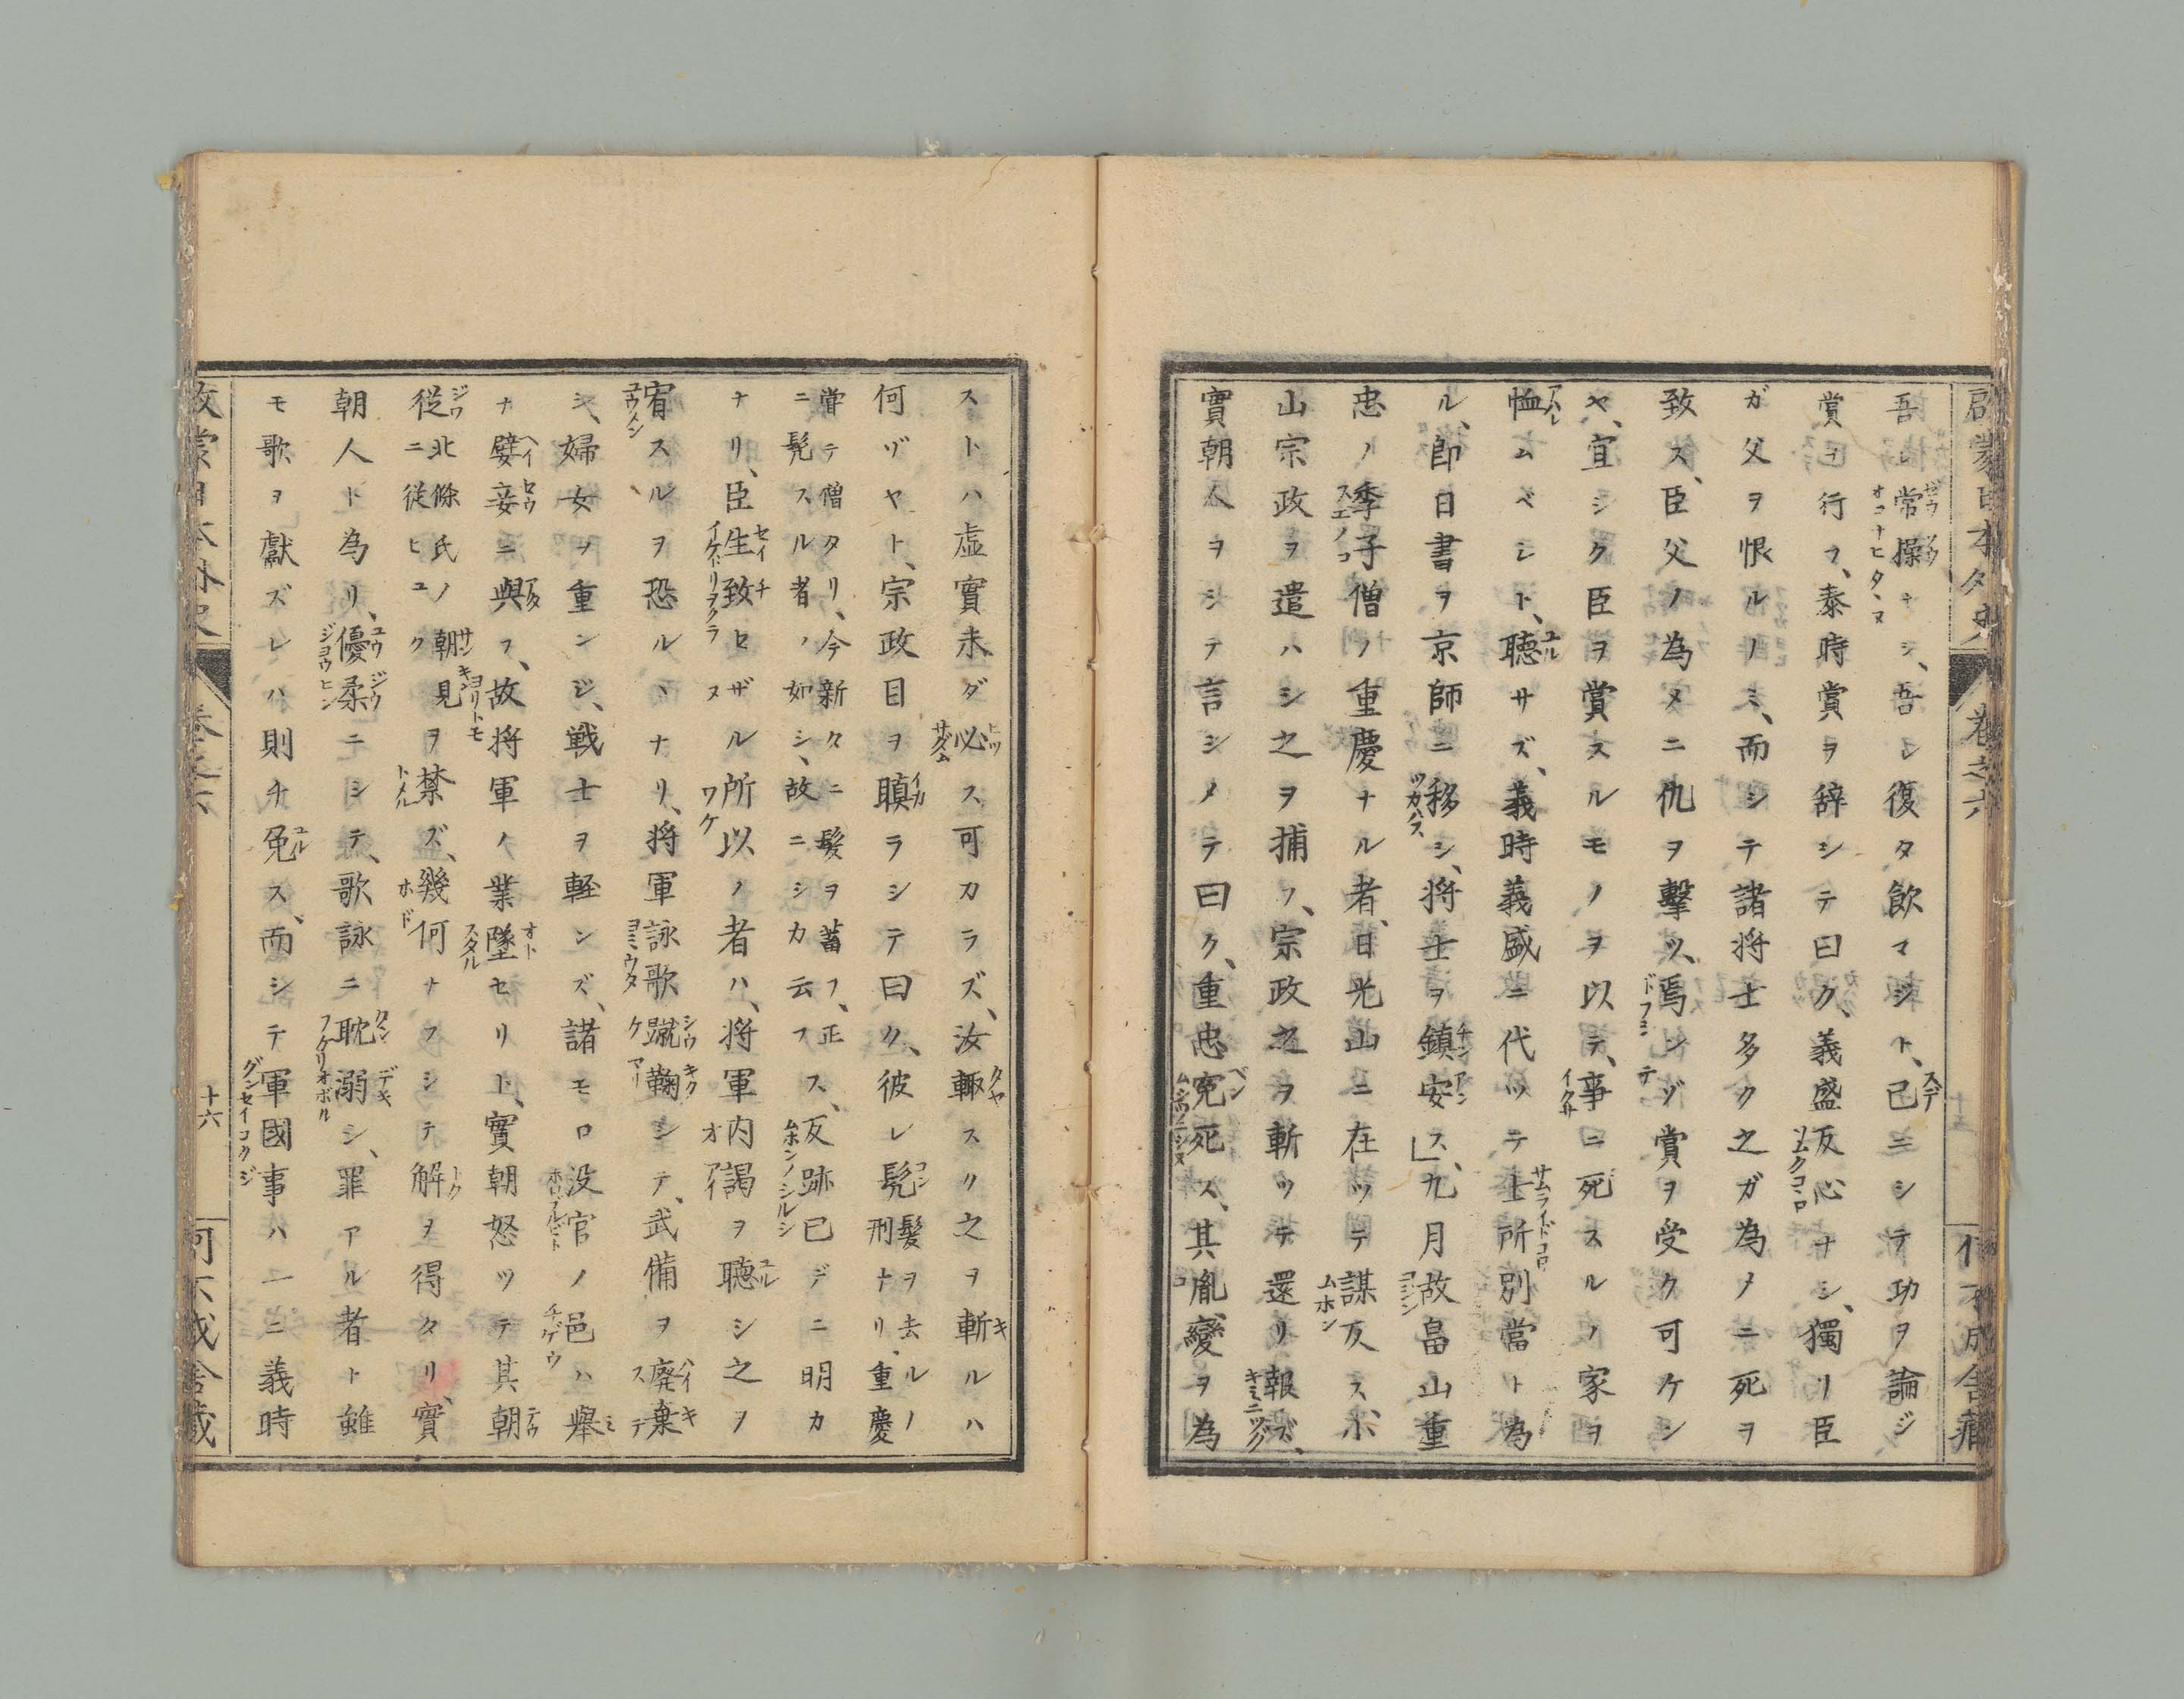 啓蒙日本外史 卷之六
吾レ常操ナシ、吾レ復タ飲マジト、已ニシテ功ヲ論ジ
賞ヲ行フ、泰時賞ヲ辞シテ曰ク、義盛反心ナシ、獨リ臣
ガ父ヲ恨ルノミ、而シテ諸将士多ク之ガ為メニ死ヲ
致ス、臣父ノ為メニ仇ヲ擊ツ、焉ンゾ賞ヲ受ク可ケン
ヤ、宜シク臣ヲ賞スルモノヲ以テ、事ニ死スルノ家ヲ
恤ムベシト、聴サズ、義時義盛ニ代ツテ士所別當ト為
ル、即日書ヲ京師ニ移シ、将士ヲ鎮安ス、九月故畠山重
忠ノ季子僧ノ重慶ナル者、日光山ニ在ツテ謀反ス、小
山宗政ヲ遣ハシ之ヲ捕フ、宗政之ヲ斬ツテ還リ報ズ、
實朝人ヲシテ言シメテ曰ク、重忠冤死ス、其胤變ヲ為
ストハ虚實未ダ必ス可カラズ、汝輙スク之ヲ斬ルハ
何ヅヤト、宗政目ヲ瞋ラシテ曰ク、彼レ髡刑ナリ、重慶
髪ヲ去ルノ
嘗テ僧タリ、今新タニ髪ヲ蓄フ、正
ニ髡スル者ノ如シ、故ニシカ云フ
ス、反跡已デニ明カ
ナリ、臣生致セザル所以ノ者ハ、将軍内謁ヲ聴シ之ヲ
宥スルヲ恐ルヽナリ、将軍詠歌蹴鞠シテ、武備ヲ廃棄
シ、婦女ヲ重ンジ、戦士ヲ軽ンズ、諸モロ没官ノ邑ハ擧
ナ嬖妾ニ與フ、故将軍ノ業墜セリト、實朝怒ツテ其朝
従
北條氏ノ
ニ従ヒユク
朝見ヲ禁ズ、幾何ナフシテ解ヲ得タリ、實
朝人ト為リ、優柔ニシテ、歌詠ニ耽溺シ、罪アル者ト雖
モ歌ヲ獻ズレハ則チ免ス、而シテ軍國事ハ一ニ義時
十六